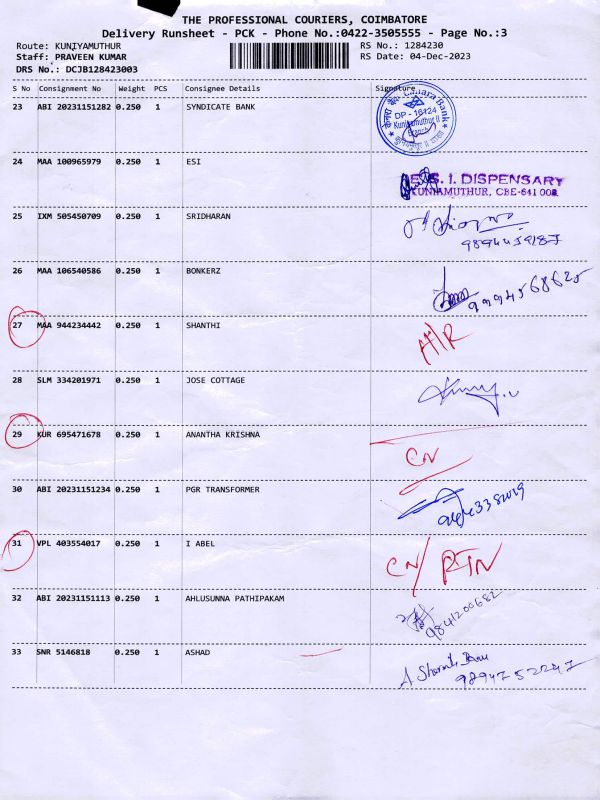 THE PROFESSIONAL COURIERS, COIMBATORE
Delivery Runsheet - PCK - Phone No.:0422-3505555 - Page No.:3
Route: KUNIYAMUTHUR RS No.: 1284230
Staff: PRAVEEN KUMAR RS Date: 04-Dec-2023
DRS No.: DCJB128423003
S No Consignment No Weight PCS Consignee Details Signature
23 ABI 20231151282 0.250 1 SYNDICATE BANK
Canara Bank
DP - 16124
Kuniyamuthur II
Branch
24 MAA 100965979 0.250 1 ESI
E. S. I. DISPENSARY
KUNIAMUTHUR, CBE-641 008.
25 IXM 505450709 0.250 1 SRIDHARAN
26 MAA 106540586 0.250 1 BONKERZ
9994568625
27 MAA 944234442 0.250 1 SHANTHI
28 SLM 334201971 0.250 1 JOSE COTTAGE
29 KUR 695471678 0.250 1 ANANTHA KRISHNA
CN
30 ABI 20231151234 0.250 1 PGR TRANSFORMER
31 VPL 403554017 0.250 1 I ABEL
CN/ RTN
32 ABI 20231151113 0.250 1 AHLUSUNNA PATHIPAKAM
9841200682
33 SNR 5146818 0.250 1 ASHAD
9894752247